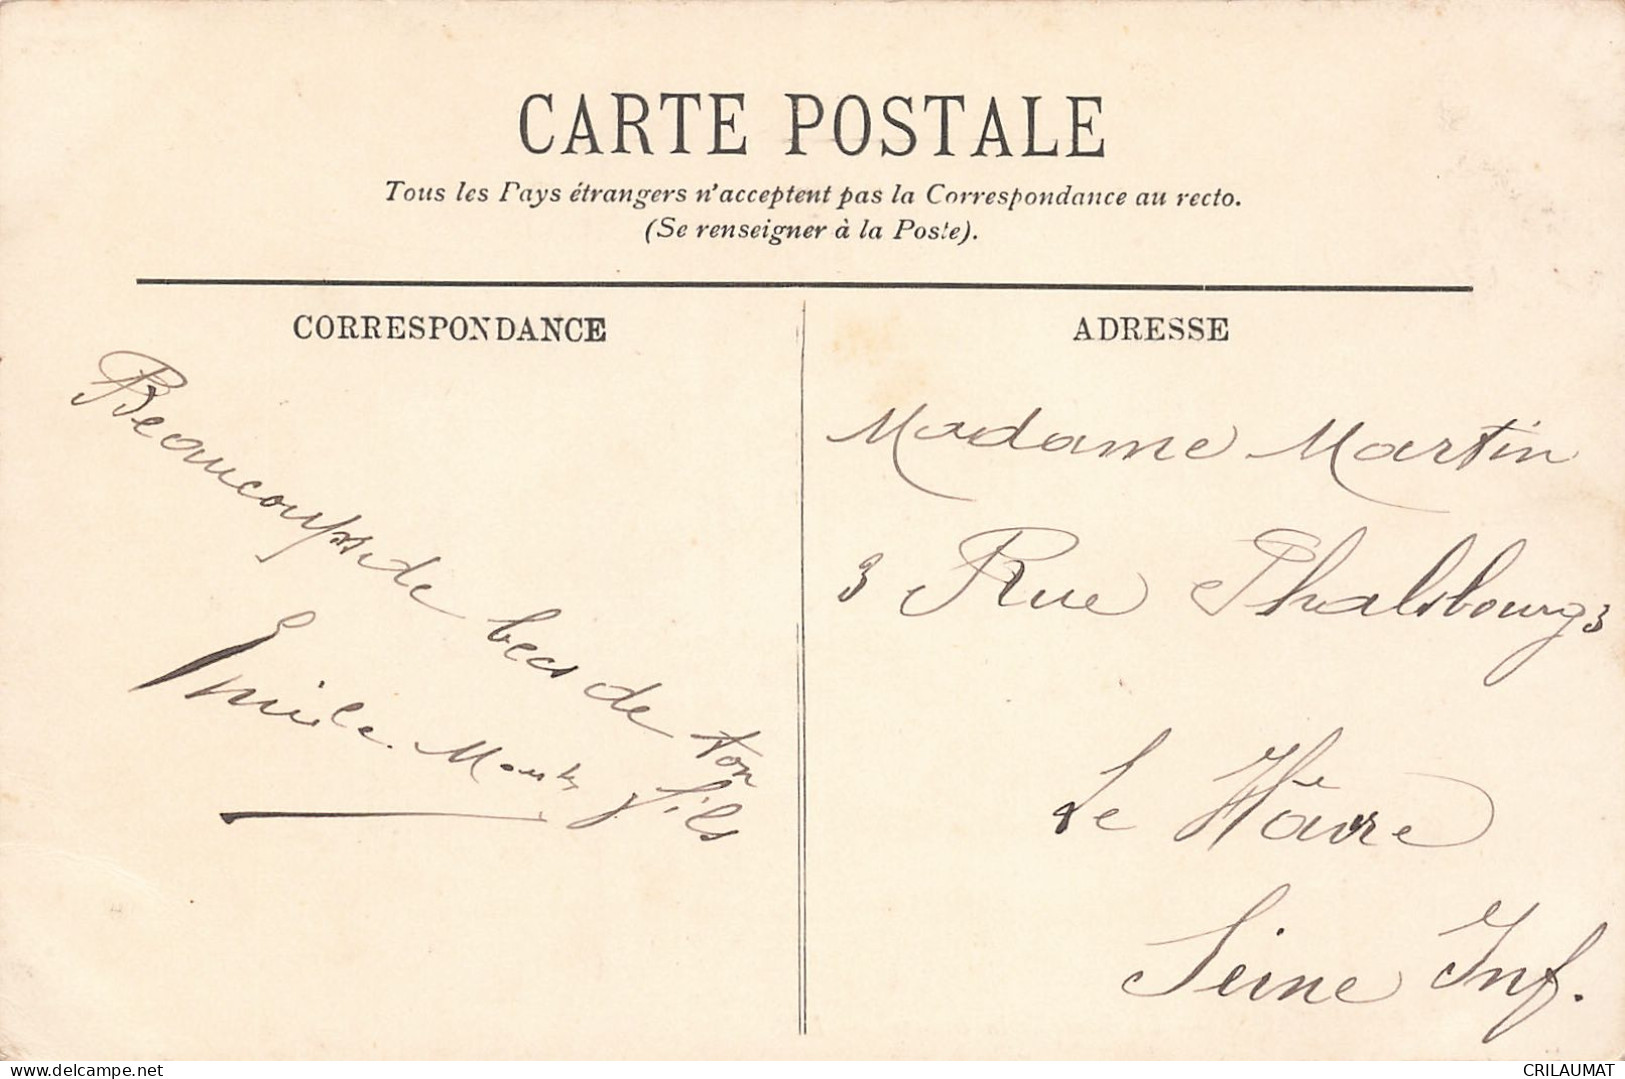 CARTE POSTALE
Tous les Pays étrangers n'acceptent pas la Correspondance au recto.
(Se renseigner à la Poste).
CORRESPONDANCE
Beaucoups de becs de ton
fils
Emile
ADRESSE
Madame Martin
3 Rue Phalsbourg 3
Le Hâvre
Seine Inf.
www.delcampe.net
CRILAUMAT